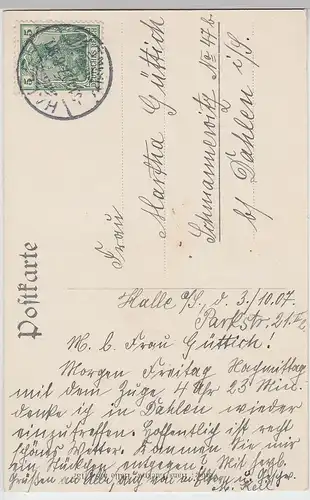 Postkarte
Frau
Martha Güttich
Schmannewitz No 47b
b/ Dahlen i/S.
Halle a/S., d. 3./10.07.
Parkstr. 21
M. l. Frau Güttich!
Morgen Freitag Nachmittag
mit dem Zuge 4 Uhr 23 Min.
denke ich in Dahlen wieder
einzutreffen. Hoffentlich ist recht
schönes Wetter. Kommen Sie mir
ein Stückchen entgegen? Mit herzl.
Grüßen an alle